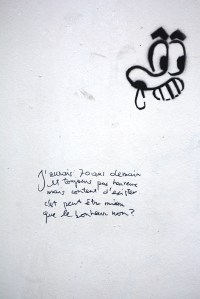 J'aurais 70 ans demain
et toujours pas heureux
mais content d'exister
c'est peut être mieux
que le bonheur non?